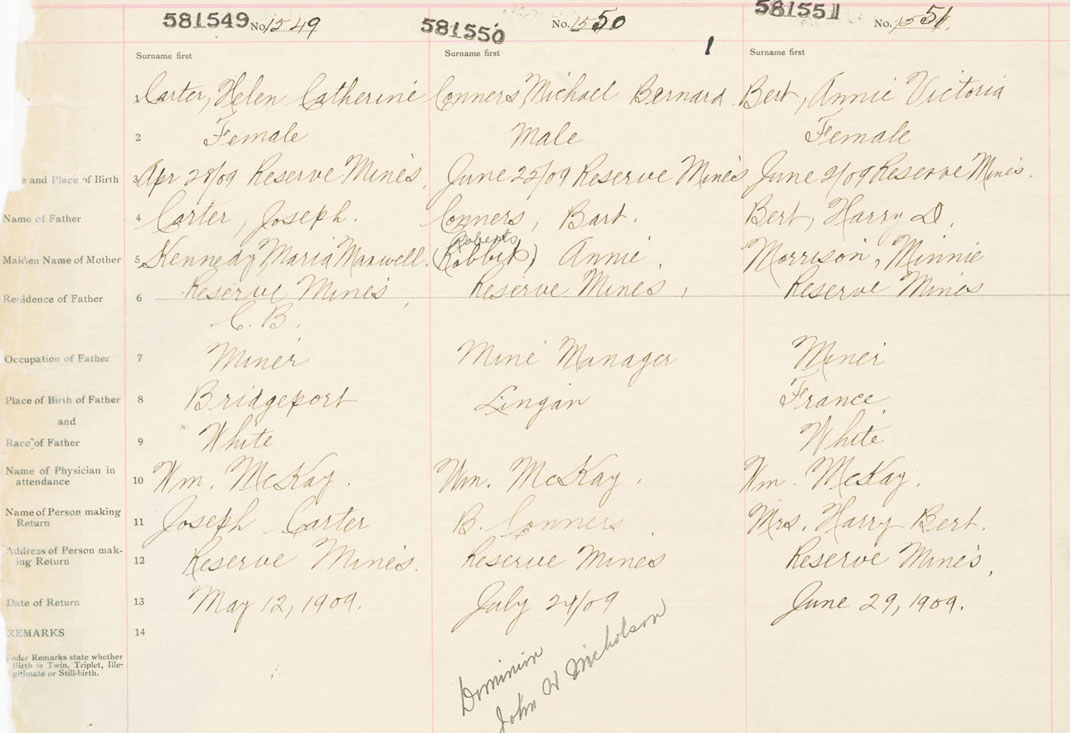 581549 No. 1549
581550 No. 1550
581551 No. 1551.
1
Surname first Surname first Surname first
1 Carter, Helen Catherine Conners, Michael Bernard Bert, Annie Victoria
2 Female Male Female
e and Place of Birth 3 Apr 28/09 Reserve Mines. June 25/09 Reserve Mines June 2/09 Reserve Mines.
Name of Father 4 Carter, Joseph. Conners, Bart. Bert, Harry D.
Roberts
Maiden Name of Mother 5 Kennedy Maria Maxwell. (Robbit) Annie. Morrison, Minnie
Residence of Father 6 Reserve Mines, Reserve Mines, Reserve Mines
C. B.
Occupation of Father 7 Miner Mine Manager Miner
Place of Birth of Father 8 Bridgeport Lingan France
and
Race of Father 9 White White
Name of Physician in attendance 10 Wm. McKay. Wm. McKay. Wm. McKay.
Name of Person making Return 11 Joseph Carter B. Conners Mrs. Harry Bert.
Address of Person mak-ing Return 12 Reserve Mines. Reserve Mines Reserve Mines,
Date of Return 13 May 12, 1909. July 24/09 June 29, 1909.
REMARKS 14
nder Remarks state whether
Birth is Twin, Triplet, Ille-
gitimate or Still-birth.
Dominion
John W Nicholson